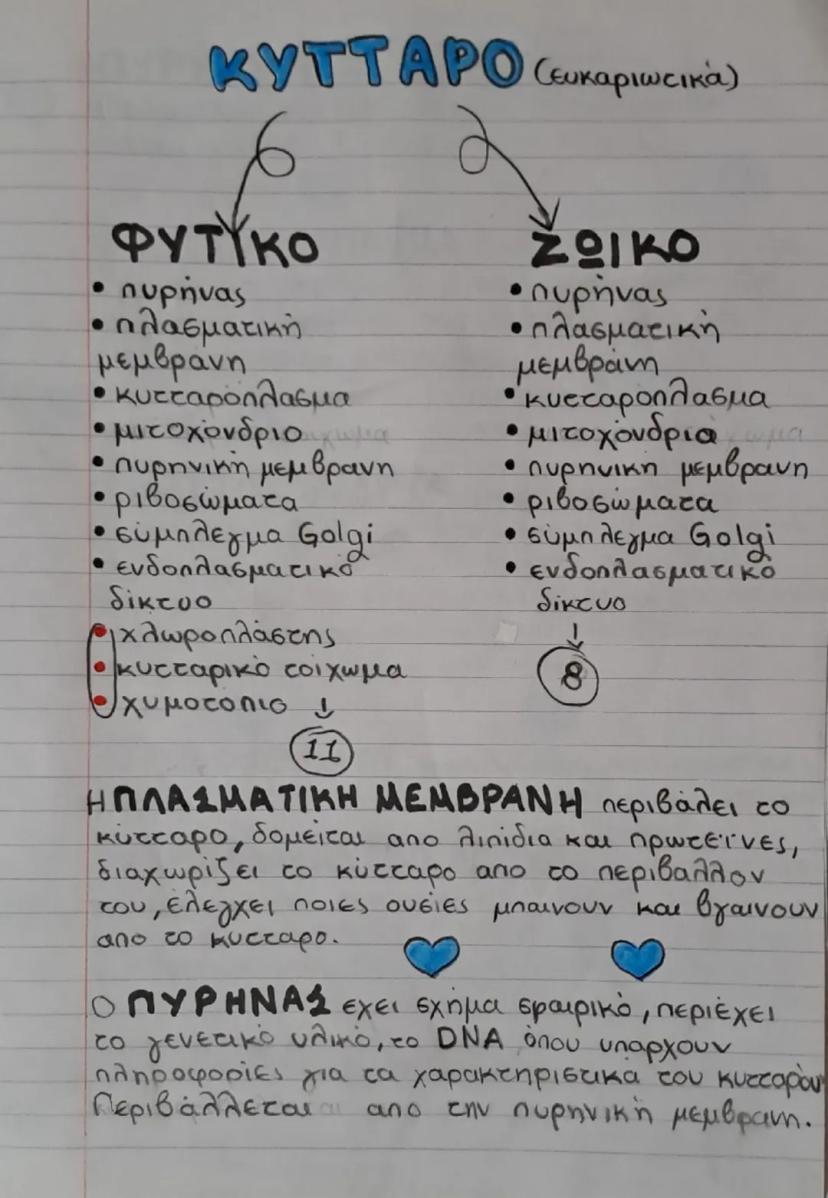 ΚΥΤΤΑΡΟ (ευκαριωτικά)
ΦΥΤΙΚΟ ΖΩΙΚΟ
• πυρήνας • πυρήνας
• πλασματική • πλασματική
μεμβράνη μεμβράνη
• κυτταρόπλασμα • κυτταροπλασμα
• μιτοχόνδριο • μιτοχόνδρια
• πυρηνική μεμβρανη • πυρηνικη μεμβρανη
• ριβοσώματα • ριβοσώματα
• σύμπλεγμα Golgi • σύμπλεγμα Golgi
• ενδοπλασματικό • ενδοπλασματικό
δίκτυο δίκτυο
• χλωροπλάστης
• κυτταρικό τοίχωμα 8
• χυμοτοπιο
11
Η ΠΛΑΣΜΑΤΙΚΗ ΜΕΜΒΡΑΝΗ περιβάλει το
κύτταρο, δομείται απο λιπίδια και πρωτεϊνες,
διαχωρίζει το κύτταρο απο το περιβαλλον
του, ελεγχει ποιες ουσίες μπαινουν και βγαινουν
απο το κυτταρο.
Ο ΠΥΡΗΝΑΣ εχει σχήμα σφαιρικό, περιέχει
το γενετικό υλικό, το DNA όπου υπαρχουν
πληροφορίες για τα χαρακτηριστικα του κυτταρου
Περιβάλλεται απο την πυρηνική μεμβρανη.